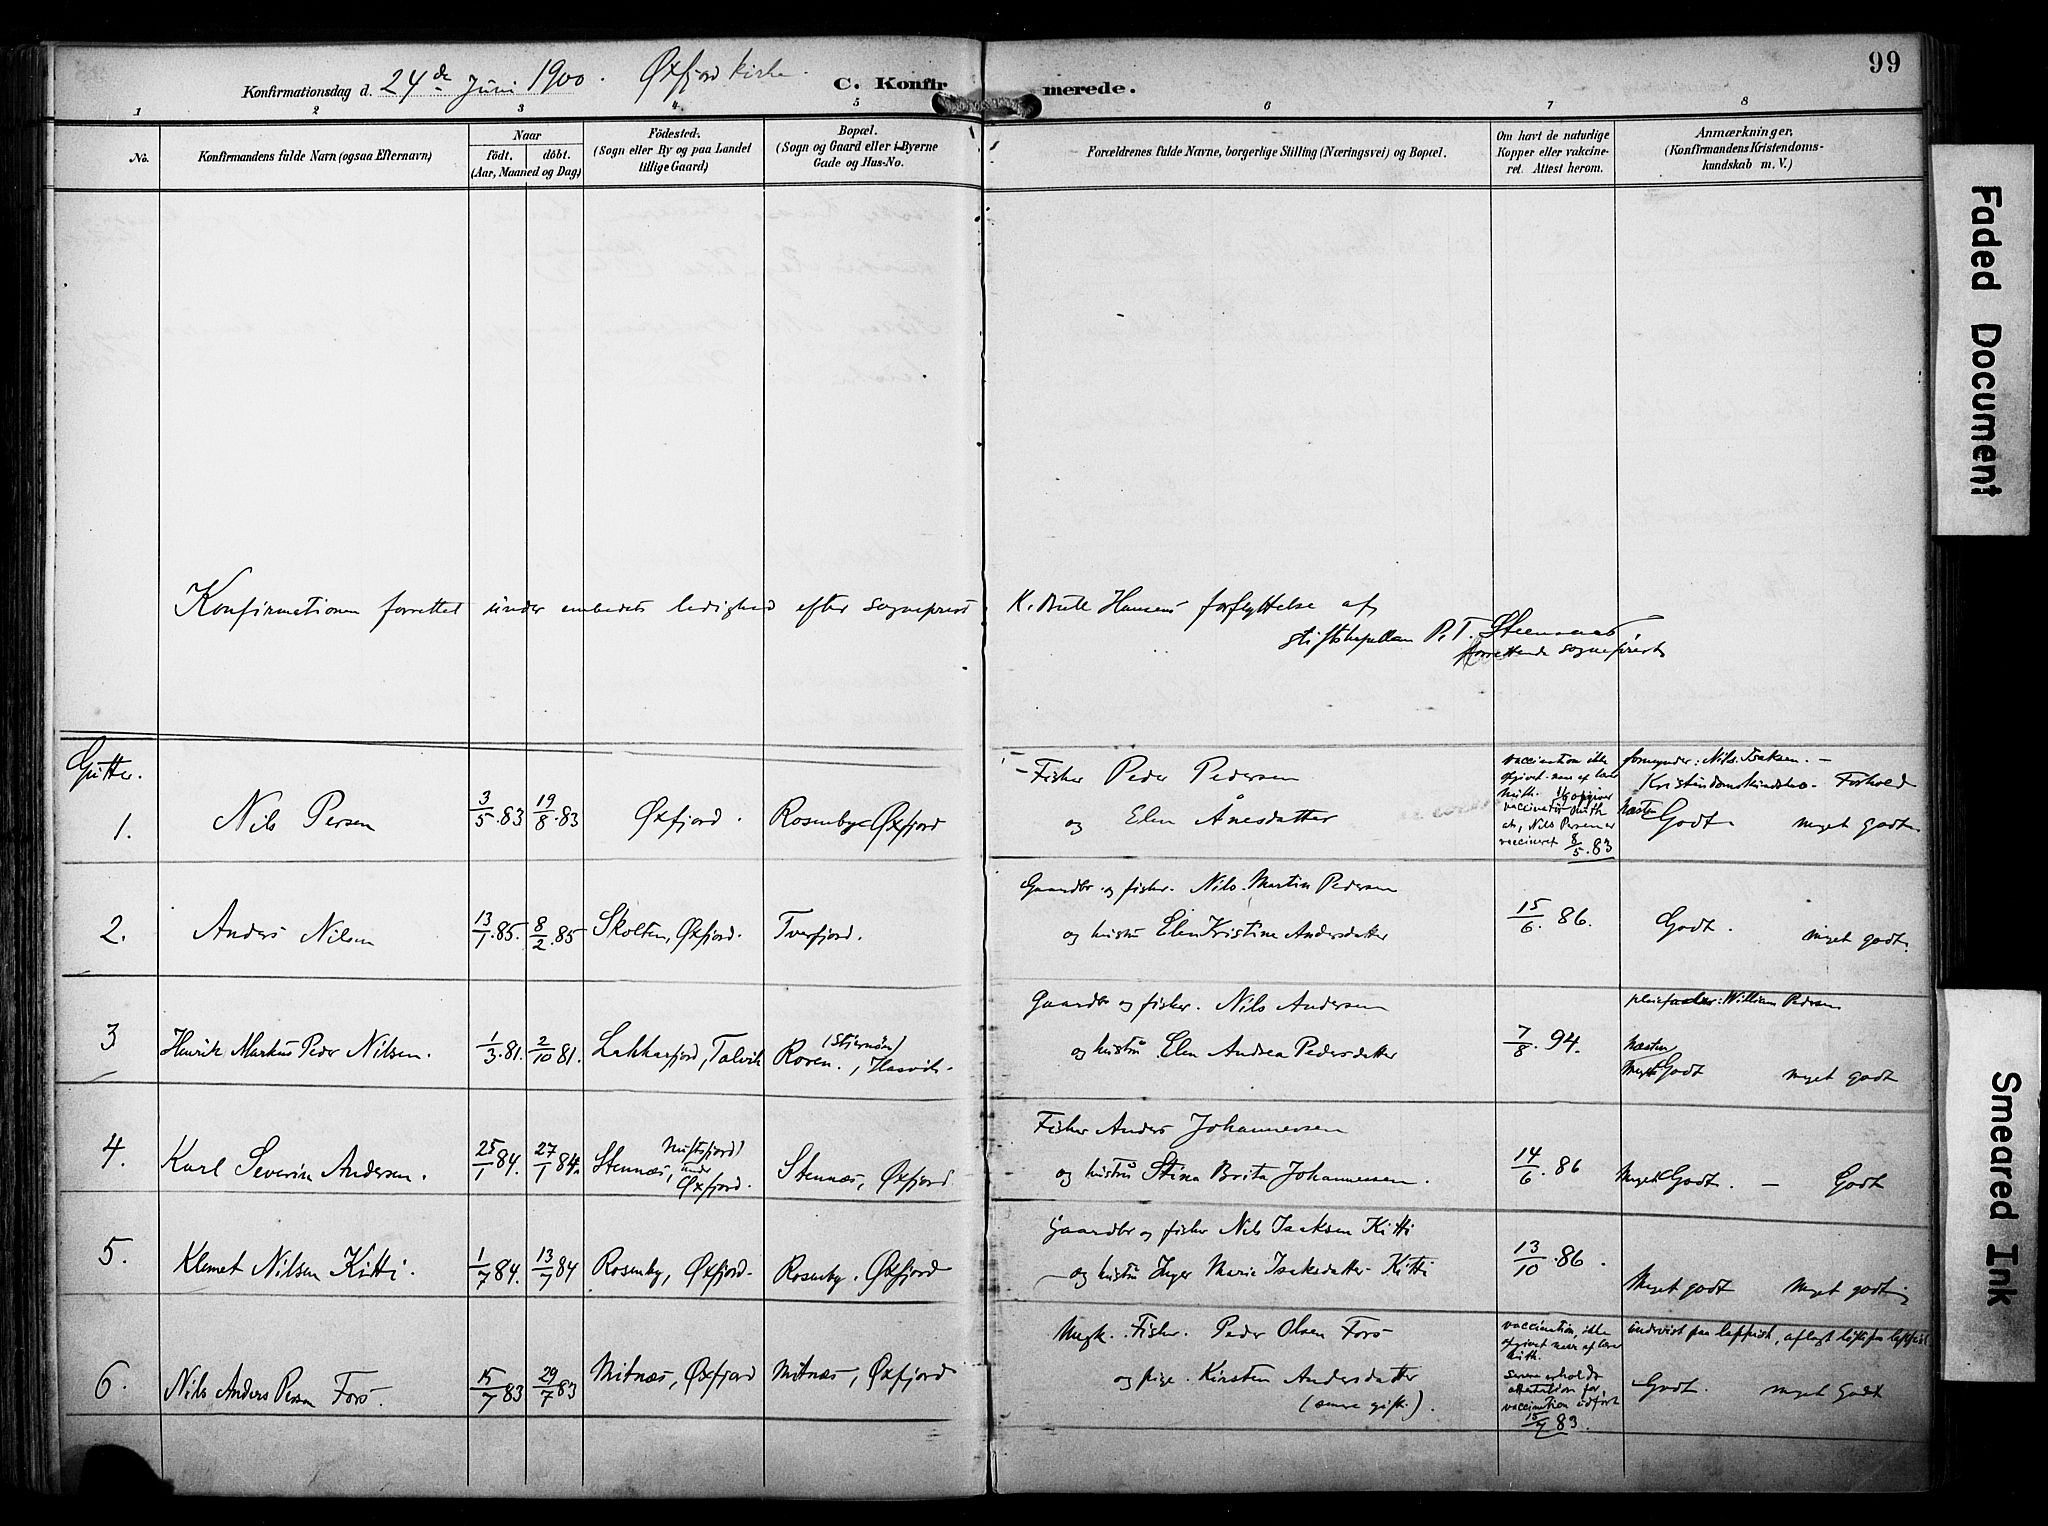 99
Konfirmationsdag d. 24de Juni 1900. Øxfjord kirke.
C. Konfirmerede.
1 2 3 4 5 6 7 8
No.
Konfirmandens fulde Navn (ogsaa Efternavn)
Naar
födt. döbt.
(Aar, Maaned og Dag)
Födested.
(Sogn eller By og paa Landet
tillige Gaard)
Bopæl.
(Sogn og Gaard eller i Byerne
Gade og Hus-No.
Forældrenes fulde Navne, borgerlige Stilling (Næringsvei) og Bopæl.
Om havt de naturlige
Kopper eller vakcine-
ret. Attest herom.
Anmærkninger,
(Konfirmandens Kristendoms-
kundskab m. V.)
Konfirmationen forrettet under embedets ledighed efter sogneprest K. Bull Hansens forflyttelse af
stiftskapellan P. T. Steensaas
forrettende sogneprest
Gutter.
1. Nils Persen 3/5.83 19/8.83 Øxfjord. Rosenby Øxfjord
Fisker Peder Pedersen
og Elen Ånesdatter
vaccination ikke
opgivet
vaccineret 8/5.83
formynder: Nils Isaksen. –
Kristendomskundskab Forhold
Næsten Godt. meget godt
2. Anders Nilsen 13/1.85. 8/2.85 Skolten, Øxfjord. Tverfjord.
Gaardbr. og fisker. Nils Martin Pedersen
og hustru Elen Kristine Andersdatter
15/6.86.
Godt. meget godt.
3 Henrik Markus Peder Nilsen. 1/3.81. 2/10.81. Lakkarfjord, Talvik (Stjernøen) Roven., Hasvik.
Gaardbr og fisker. Nils Andersen
og hustru Elen Andrea Pedersdatter
7/8.94.
pleiefader: William Pedersen
Næsten
Meget Godt meget godt
4. Karl Severin Andersen. 25/1 84. 27/1 84. Stennæs, Nuftsfjord under Øxfjord. Stennæs, Øxfjord
Fisker Anders Johannessen
og hustru Stina Brita Johannessen.
14/6.86
Meget Godt. – Godt
5. Klemet Nilsen Kitti. 1/7 84. 13/7 84 Rosenby, Øxfjord. Rosenby. Øxfjord
Gaardbr og fisker Nils Isaksen Kitti
og hustru Inger Marie Isaksdatter Kitti
13/10.86.
Meget godt meget godt
6. Nils Anders Persen Fors. 15/7 83 29/7 83 Mitnæs, Øxfjord Mitnæs, Øxfjord
Ungk. Fisker. Peder Olsen Fors
og pige. Kirsten Andersdatter
(senere gift.).
vaccination, ikke
opgivet
senere erholdt
attestation for
vaccination udført
83.
undervist paa lappisk, aflagt løfte paa lappisk
Godt. meget Godt
Faded Document
Smeared Ink